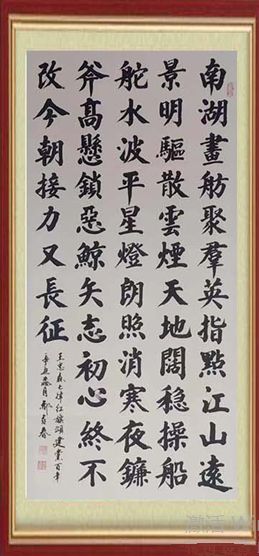 南湖畫舫聚羣英指點江山遠
景明驅散雲煙天地闊穩操船
舵水波平星燈朗照消寒夜鐮
斧髙懸鎖惡鯨矢志初心終不
改今朝接力又長征
七律红旗頌建黨百年
辛丑 月
激活 W